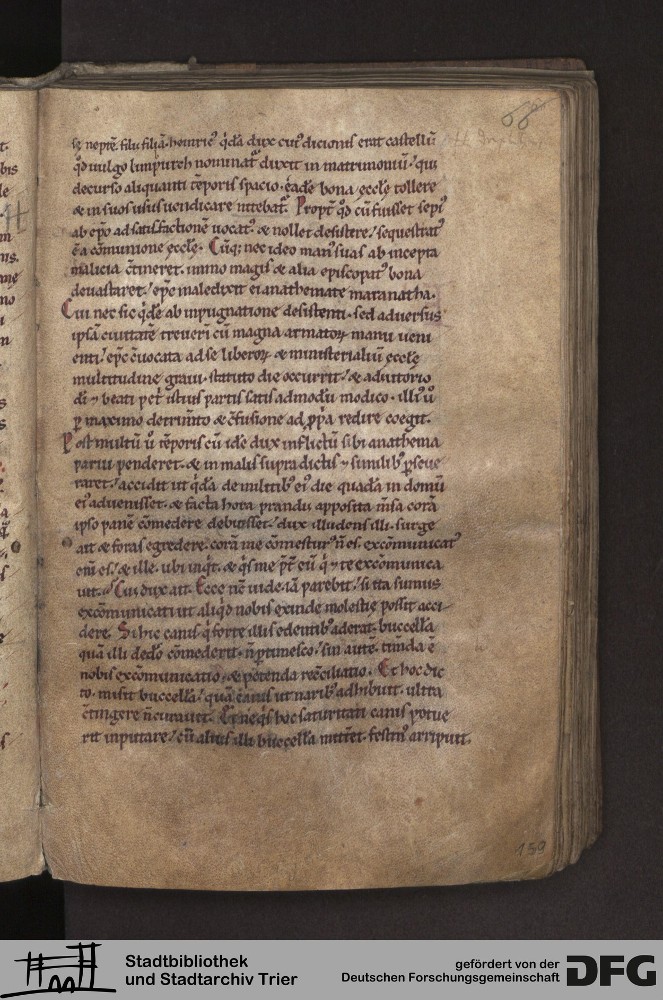 68
sę neptē. filii filiā. heinric᷒ q͑dā dux cui᷒ dicionis erat castellū
qd̄ uulgo limpurch nominat᷑ duxit in matrimoniū.' qui
decurso aliquanti tēporis spacio. eādē bona ęccłę tollere
& in suos usus uendicare nitebat᷑. Propt̄ qd̄ cū fuisset sepi᷒
ab epō ad satisfactionē uocat᷒ & nollet desistere.' sequestrat᷒
ē a cōmunione ęccłę. Cūq; nec ideo man᷒ suas ab incepta
malicia c̄tineret. immo magis & alia episcopat᷒ bona
deuastaret.' epc̄ maledixit ei anathemate maranatha.
Cui nec sic q͑dē ab inpugnatione desistenti. sed aduersus
ipsā ciuitatē treueri cū magna armatoꝝ manu ueni
enti.' epc̄ c̄uocata ad se liberoꝝ & ministerialiū ęccłę
multitudine graui. statuto die occurrit.' & adiutorio
dī ⁊ beati pet͑ istius partis satis admodū modico. illi᷒ ū
ꝑ maximo detrim̄to & c̄fusione ad ꝓpa redire coegit.
Post multū ū tēporis cū idē dux inflictū sibi anathema
parui penderet. & in malis supra dictis ⁊ similib᷒ ꝑseue
raret.' accidit ut q͑dā de militib᷒ ei᷒ die quadā in domū
ei᷒ aduenisset. & facta hora prandii apposita m̄sa corā
ipso panē cōmedere debuisset.' dux illudens illi. surge
ait & foras egredere. corā me cōmestur᷒ n̄ es. excōmunicat᷒
eni es.' & ille. ubi inq͑t. & q͑s me p̄t eū q͑ ⁊ te excōmunica
uit. Cui dux ait. Ecce nc̄ uide. iā parebit.' si ita sumus
excōmunicati ut aliq͑d nobis exinde molestię possit acci
dere. Si hic canis q͑ forte illis edentib᷒ aderat. buccellā
quā illi dedo cōmederit. n̄ ptimesco.' sin autē. tim̄da ē
nobis excōmunicatio. & petenda recc̄iliatio. Et hoc dic
to. misit buccellā.' quā canis ut narib᷒ adhibuit. ultra
c̄tingere n̄ curauit. Et ne q͑s hoc saturitati canis potue
rit inputare.' cū alius illi buccellā mitt̄et. festin᷒ arripuit.
159
Stadtbibliothek
und Stadtarchiv Trier
gefördert von der
Deutschen Forschungsgemeinschaft
DFG